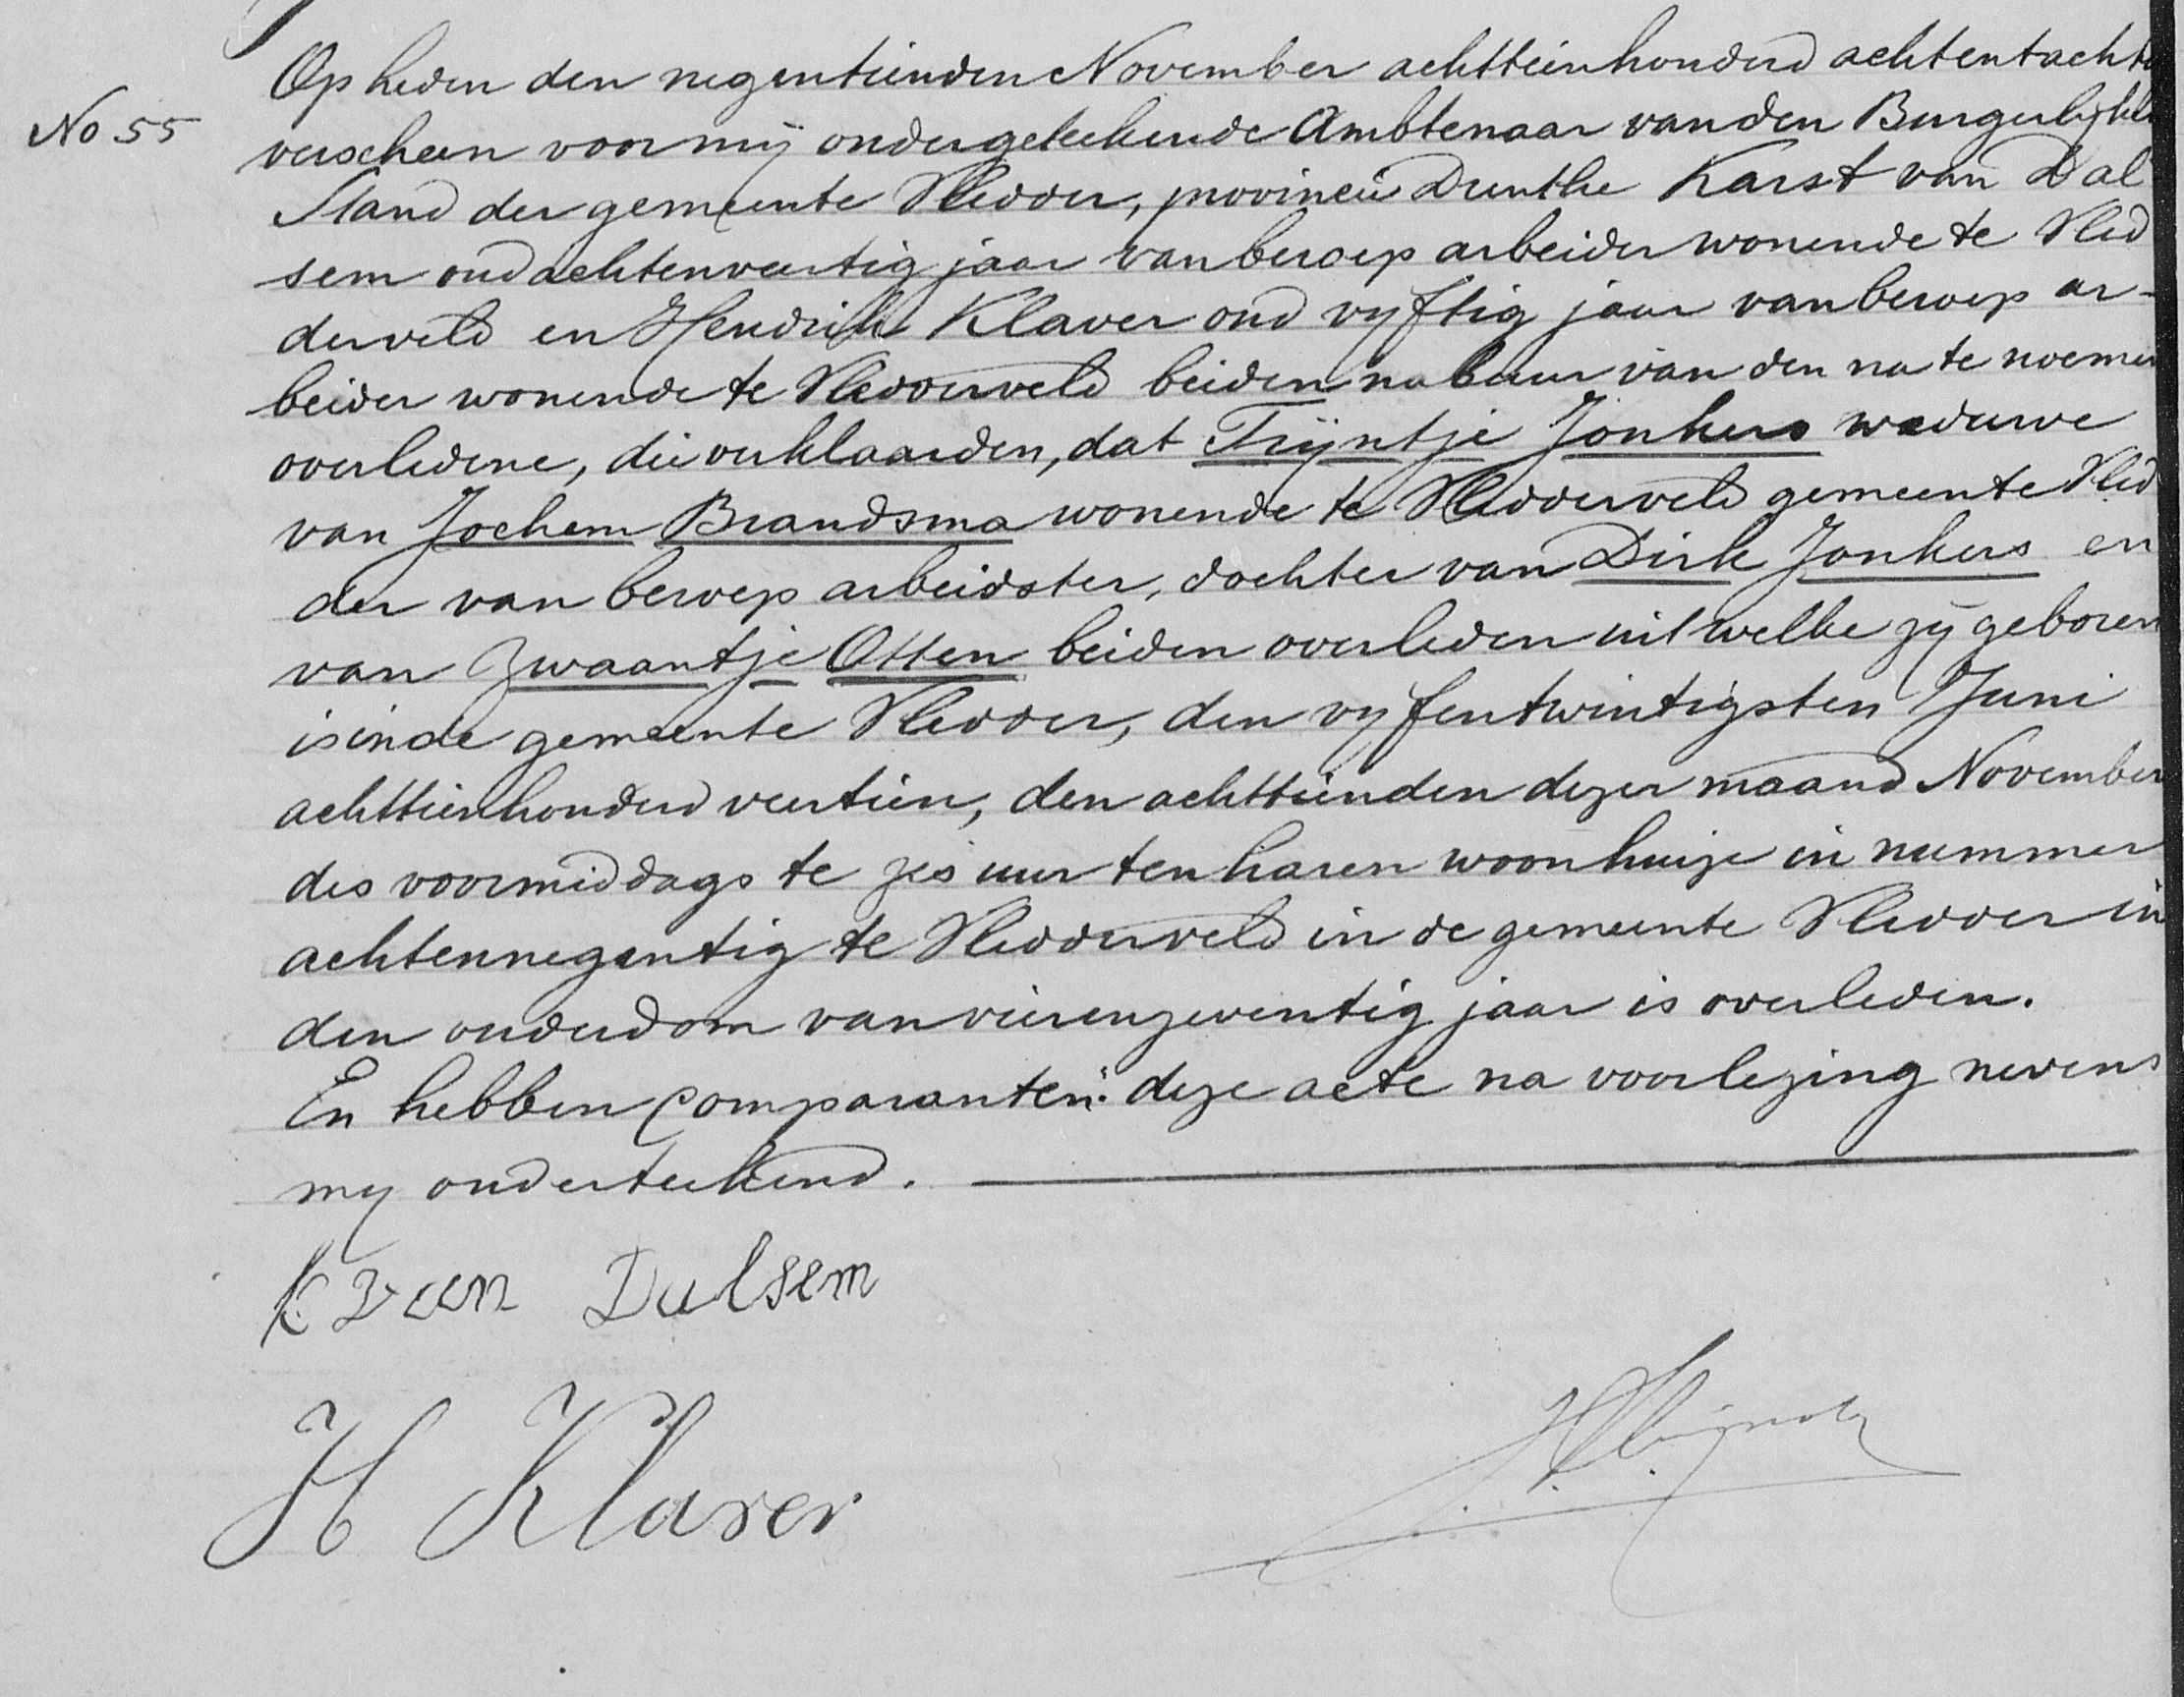 No 55
Op heden den negentienden November achttienhonderd achtentacht
verscheen voor mij ondergeteekende Ambtenaar van den Burgerlijken
Stand der gemeente Vledder, provincie Drenthe Karst van Dal
sem oud achtenveertig jaar van beroep arbeider wonende te Vled
derveld en Hendrik Klaver oud vyftig jaar van beroep ar-
beider wonende te Vledderveld beiden nabuur van den na te noemen
overledene, die verklaarden, dat Trijntje Jonkers weduwe
van Jochem Brandsma wonende te Vledderveld gemeente Vled
der van beroep arbeidster, dochter van Dirk Jonkers en
van Zwaantje Otten beiden overleden uit welke zij geboren
is in de gemeente Vledder, den vyfentwintigsten Juni
achttienhonderd veertien, den achttienden dezer maand November
des voormiddags te zes uur ten haren woonhuize in nummer
achtennegentig te Vledderveld in de gemeente Vledder in
den ouderdom van vierenzeventig jaar is overleden.
En hebben comparanten deze acte na voorlezing nevens
my onderteekend.
K van Dalsem
H Klaver